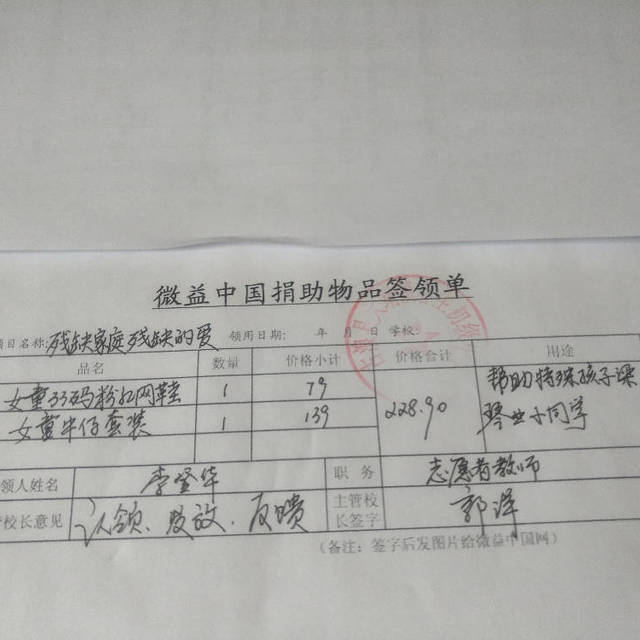 微益中国捐助物品签领单
项目名称:残缺家庭残缺的爱 领用日期: 年 月 日 学校:
品名 数量 价格小计 价格合计 用途
女童33码粉红网鞋 1 79 228.90 帮助特殊孩子梁
女童牛仔套装 1 139 琴业小同学
领人姓名 李坚华 职 务 志愿者教师
管校长意见 认领、发放、反馈 主管校长签字 郭泽
(备注:签字后发图片给微益中国网)